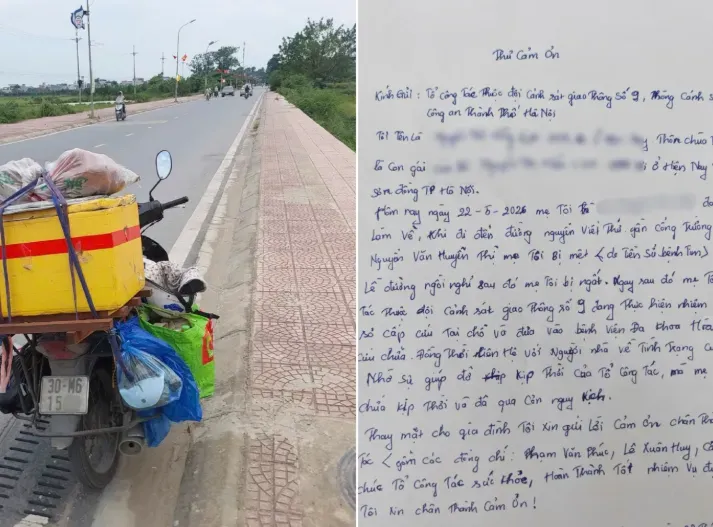 30-M6
15
Thư Cảm Ơn
Kính Gửi : Tổ công Tác Thuộc đội Cảnh sát giao Thông Số 9, Phòng Cảnh s
Công an Thành Phố Hà Nội
Tôi Tên Là Thêm chưa T
là Con gái ở Hiện Nay
sơn đồng TP Hà Nội.
Hôm nay ngày 22-5-2026 mẹ Tôi là đa
Làm Về, Khi đi đến đường nguyễn viết Thứ gần Cổng Trường
Nguyễn Văn Huyên Thì mẹ Tôi Bị mệt < do Tiền Sử bệnh Tim >
Lề đường ngồi nghỉ sau đó mẹ Tôi bị ngất. Ngay sau đó mẹ Tô
Tác Thuộc đội Cảnh sát giao Thông số 9 đang Thực hiện nhiệm
sơ cấp cứu Tại chỗ và đưa vào bệnh viện Đa khoa Hoà
Cứu chữa. Đồng Thời liên Hệ với Người nhà về Tình Trạng Cu
Nhờ sự giúp đỡ kịp Thời Của Tổ Công Tác, mà mẹ
chữa kịp Thời và đã qua Cơn nguy kịch.
Thay mặt cho gia đình Tôi Xin gửi Lời Cảm ơn chân Th
Tác < gồm các đồng chí : Phạm Văn Phúc, Lê Xuân Huy, Cô
chúc Tổ Công Tác sức khỏe, Hoàn Thành Tốt nhiệm Vụ đ
Tôi xin chân Thành Cảm Ơn !